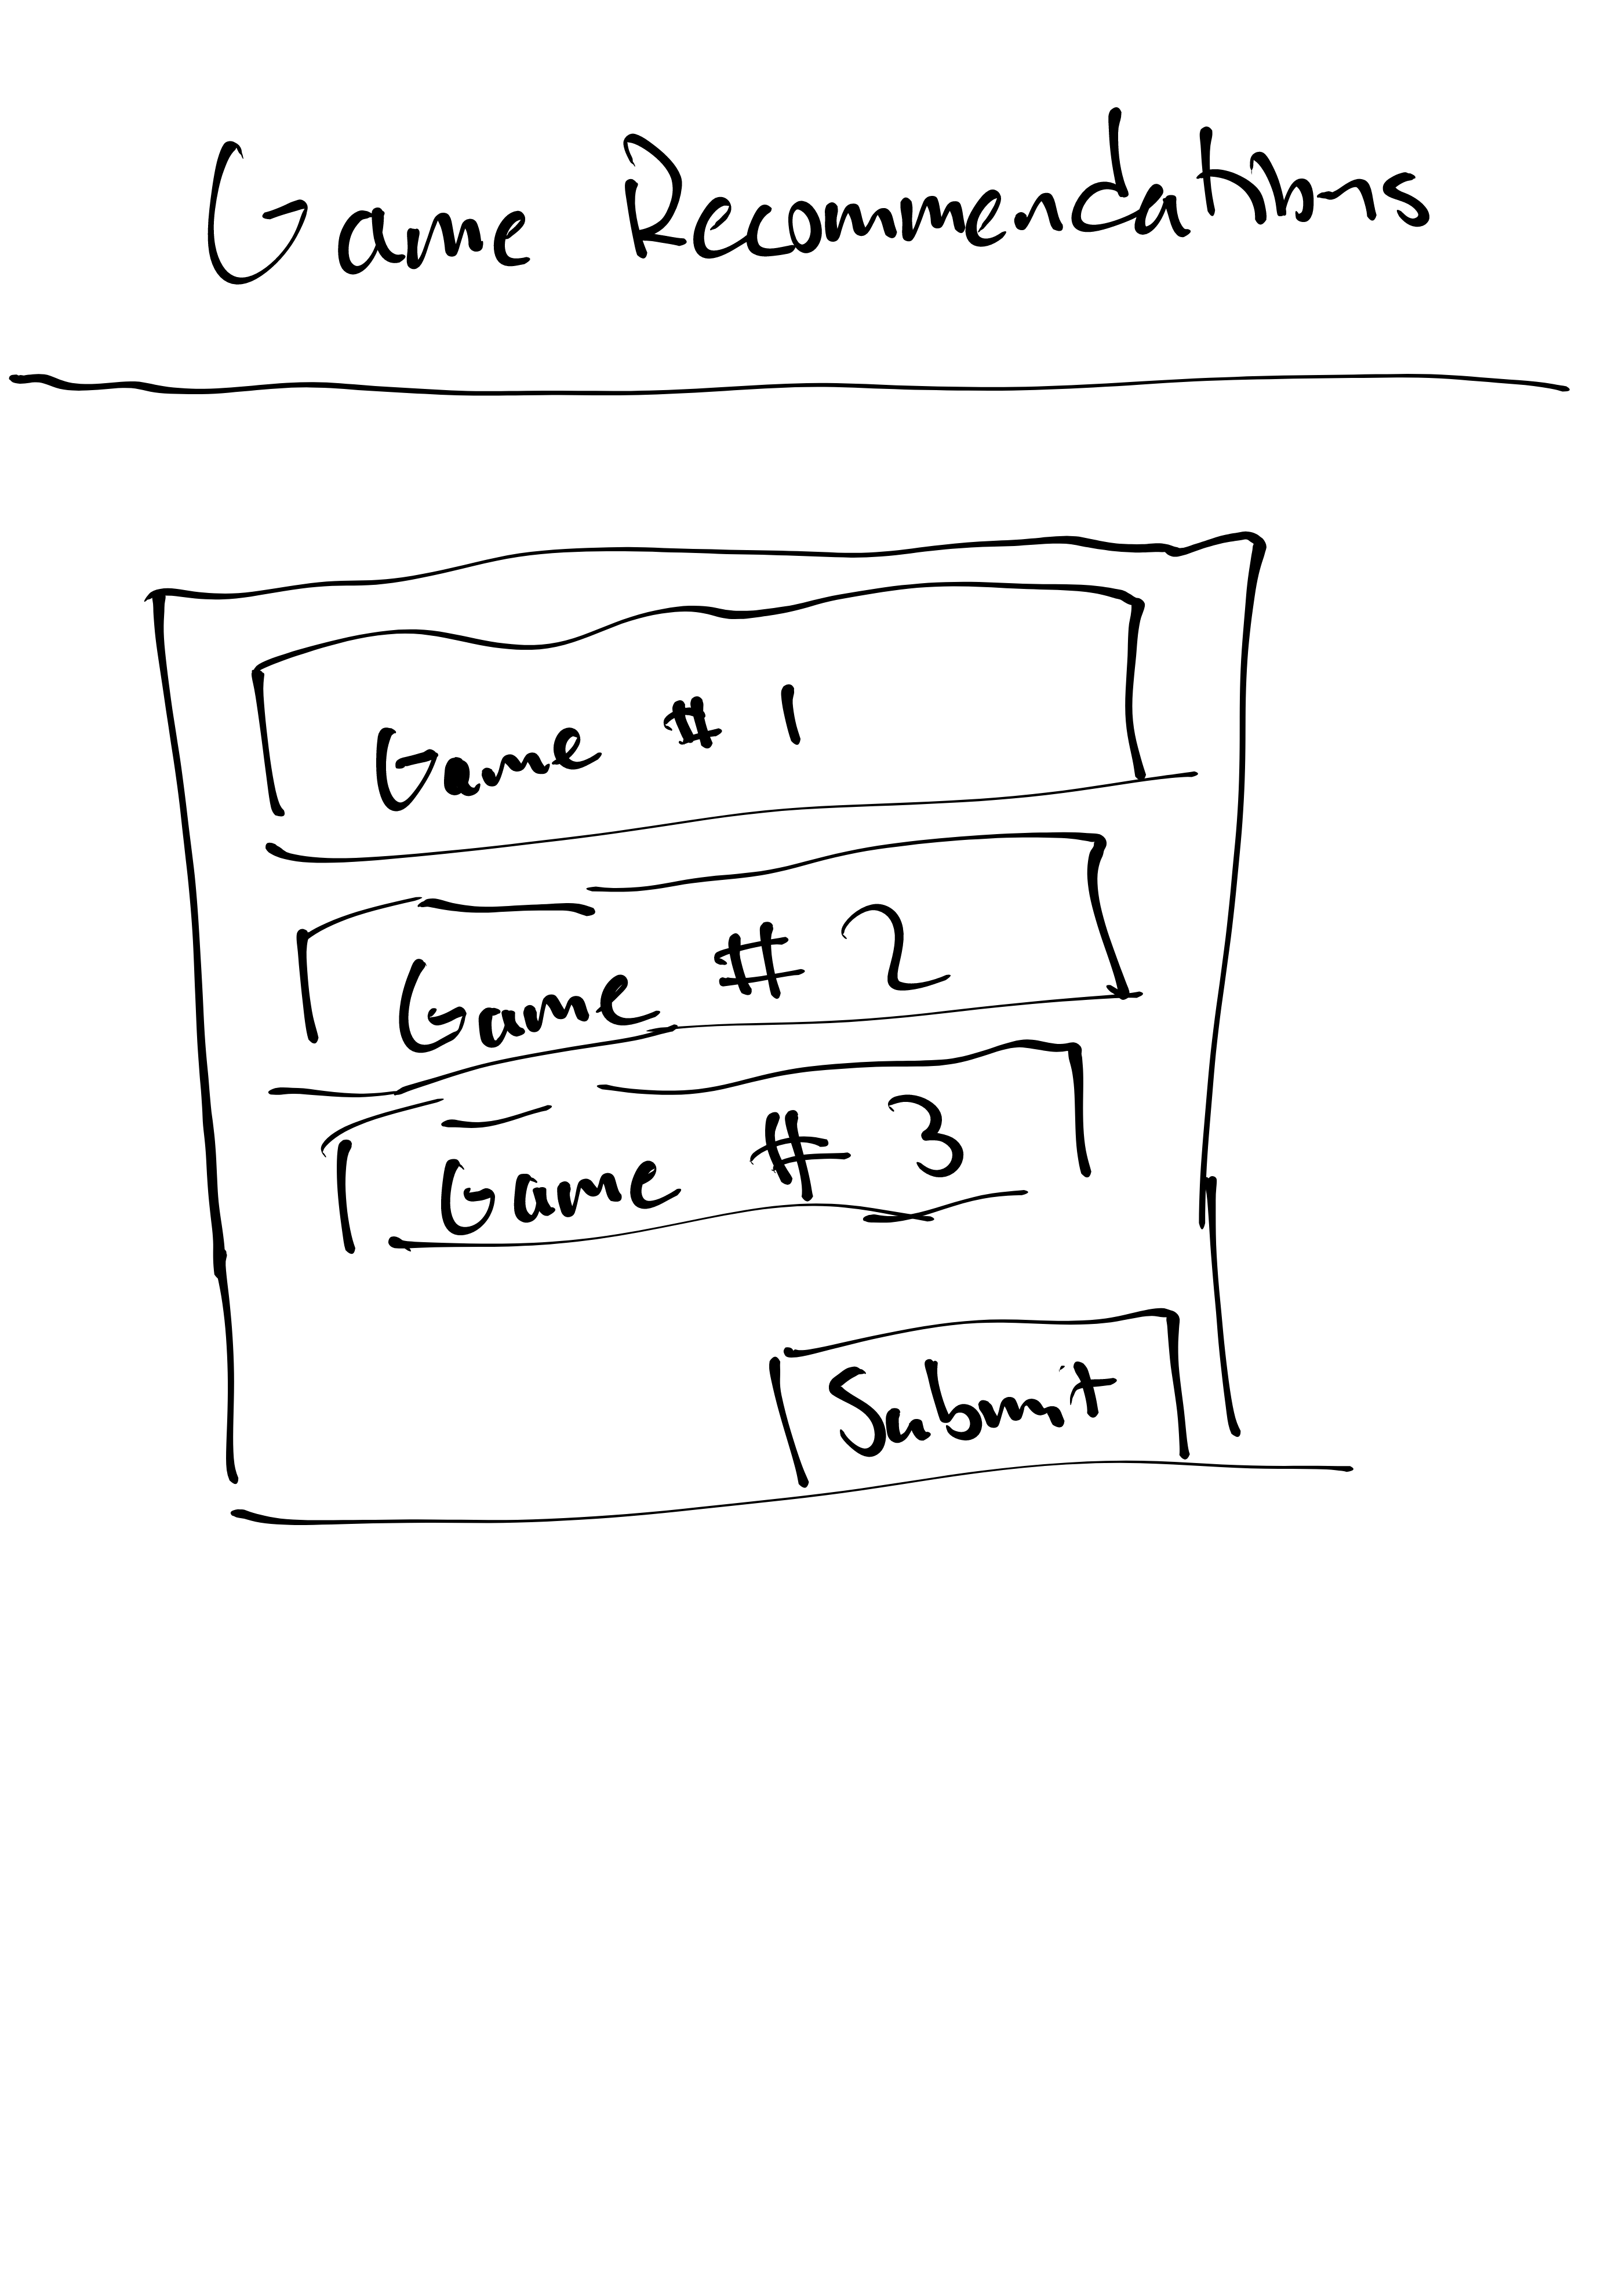 Game Recommendations
Game # 1
Game # 2
Game # 3
Submit